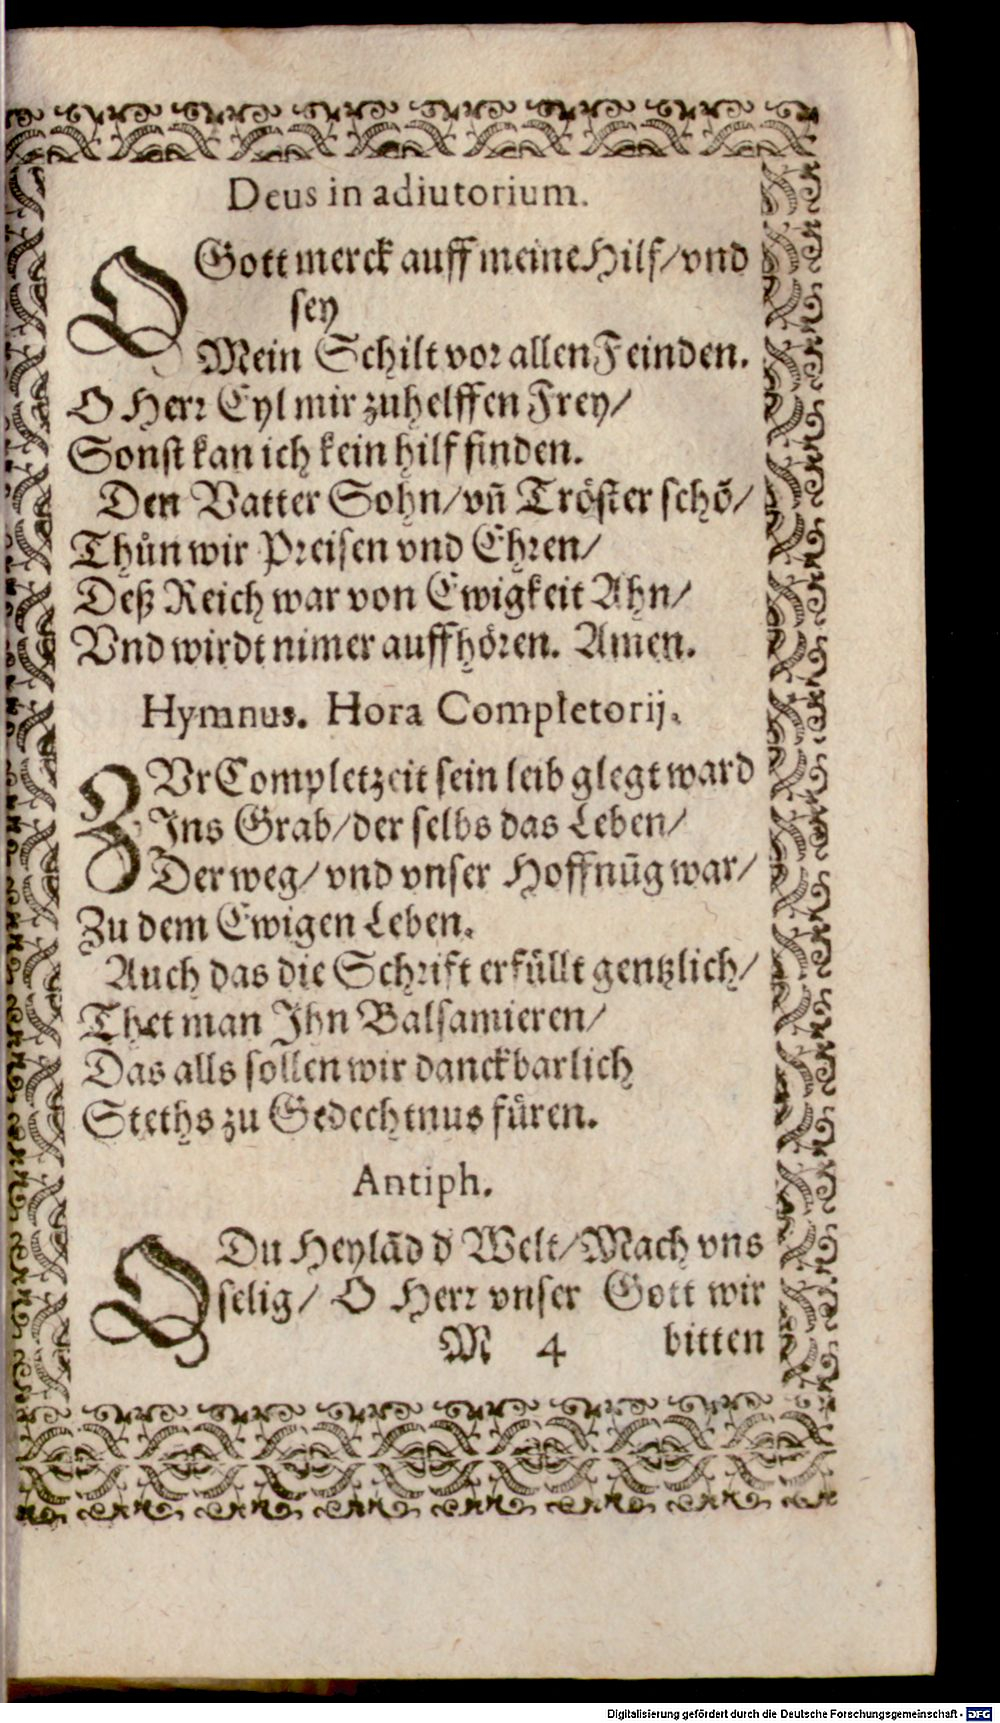 Deus in adiutorium.
O Gott merck auff meine Hilf/ vnd
sey
Mein Schilt vor allen Feinden.
O Herr Eyl mir zuhelffen Frey/
Sonst kan ich kein hilf finden.
Den Vatter Sohn/ vñ Tröster schõ/
Thůn wir Preisen vnd Ehren/
Deß Reich war von Ewigkeit Ahn/
Vnd wirdt nimer auffhören. Amen.
Hymnus. Hora Completorij.
ZVr Completzeit sein leib glegt ward
Ins Grab/ der selbs das Leben/
Der weg/ vnd vnser Hoffnũg war/
Zu dem Ewigen Leben.
Auch das die Schrift erfüllt gentzlich/
Thet man Ihn Balsamieren/
Das alls sollen wir danckbarlich
Steths zu Gedechtnus füren.
Antiph.
O Du Heylãd d Welt/ Mach vns
selig/ O Herr vnser Gott wir
M 4 bitten
Digitalisierung gefördert durch die Deutsche Forschungsgemeinschaft - DFG